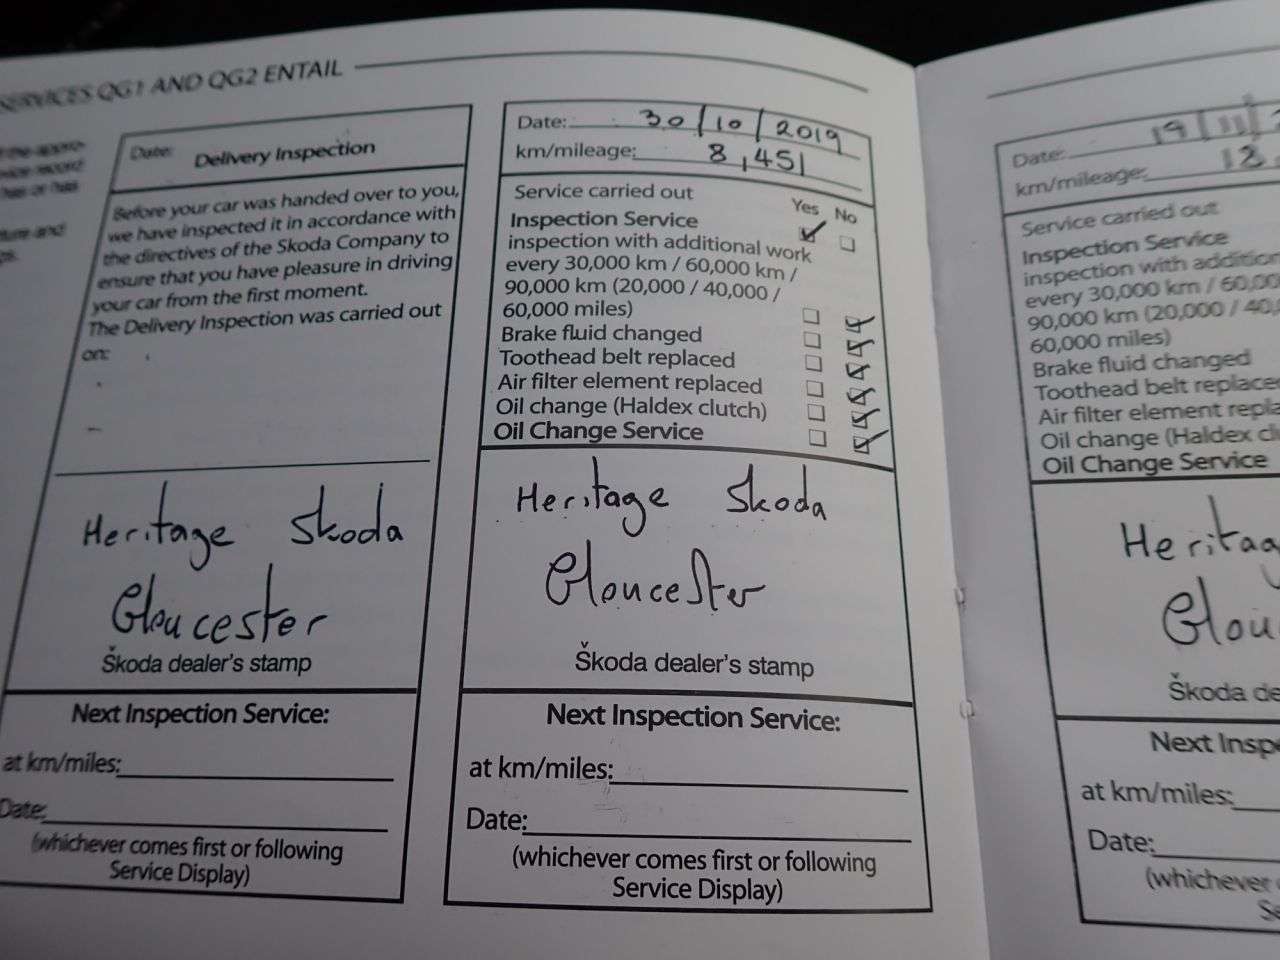 SERVICES QG1 AND QG2 ENTAIL
Date:
Delivery Inspection
Before your car was handed over to you,
we have inspected it in accordance with
the directives of the Skoda Company to
ensure that you have pleasure in driving
your car from the first moment.
The Delivery Inspection was carried out
on:
Heritage Skoda
Gloucester
Škoda dealer's stamp
Next Inspection Service:
at km/miles:
Date:
(whichever comes first or following
Service Display)
Date: 30/10/2019
km/mileage: 8,451
Service carried out
Yes No
Inspection Service
inspection with additional work
every 30,000 km / 60,000 km /
90,000 km (20,000 / 40,000 /
60,000 miles)
Brake fluid changed
Toothead belt replaced
Air filter element replaced
Oil change (Haldex clutch)
Oil Change Service
Heritage Skoda
Gloucester
Škoda dealer's stamp
Next Inspection Service:
at km/miles:
Date:
(whichever comes first or following
Service Display)
Date: 19/11/
km/mileage:
Service carried out
Inspection Service
inspection with addition
every 30,000 km / 60,00
90,000 km (20,000 / 40,
60,000 miles)
Brake fluid changed
Toothead belt replace
Air filter element repla
Oil change (Haldex cl
Oil Change Service
Heritag
Glou
Škoda de
Next Insp
at km/miles:
Date:
(whichever
Se